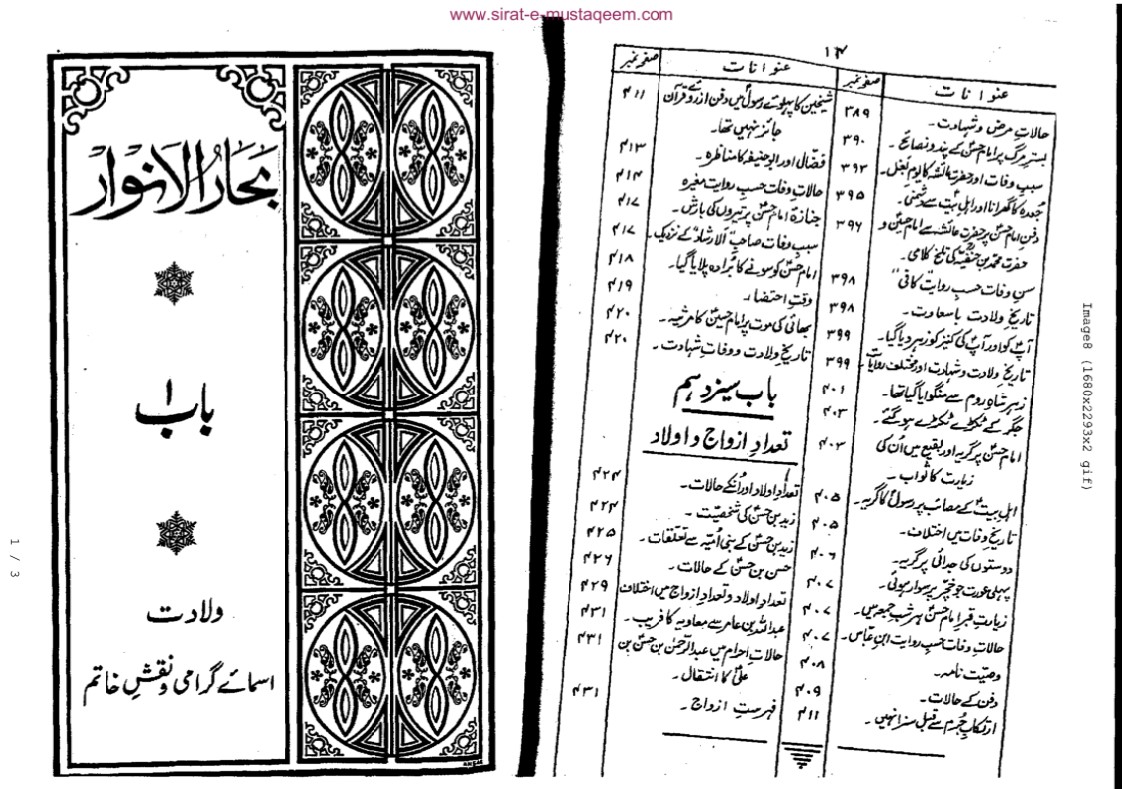 www.sirat-e-mustaqeem.com
۱۴
عنوانات
صفحہ نمبر
حالاتِ مرض و شہادت۔ ۳۸۹
بسترِ مرگ پر امام حسنؑ کے پند و نصائح۔ ۳۹۰
سببِ وفات اور حضرت عائشہ کا یومِ بغل۔ ۳۹۲
جُعدہ کا گھرانا اور اہلِ بیتؑ سے دشمنی۔ ۳۹۵
دفنِ امام حسنؑ پر حضرت عائشہ سے امام حسینؑ و ۳۹۶
حضرت محمد بن حنفیہؓ کی تلخ کلامی۔
سنِ وفات حسبِ روایت "کافی" ۳۹۸
تاریخِ ولادت باسعادت۔ ۳۹۸
آپؑ کو اور آپؑ کی کنیز کو زہر دیا گیا۔ ۳۹۹
تاریخِ ولادت و شہادت اور مختلف روایات۔ ۳۹۹
زہر شاہِ روم سے منگوایا گیا تھا۔ ۴۰۱
جگر کے ٹکڑے ٹکڑے ہو گئے۔ ۴۰۳
امام حسنؑ پر گریہ اور بقیع میں اُن کی ۴۰۳
زیارت کا ثواب۔
اہلِ بیتؑ کے مصائب پر رسولؐ کا گریہ۔ ۴۰۵
تاریخِ وفات میں اختلاف۔ ۴۰۵
دوستوں کی جدائی پر گریہ۔ ۴۰۶
پہلی عورت جو خچر پر سوار ہوئی۔ ۴۰۷
زیارتِ قبرِ امام حسنؑ ہر شبِ جمعہ میں۔ ۴۰۷
حالاتِ وفات حسبِ روایت ابنِ عباس۔ ۴۰۷
وصیت نامہ۔ ۴۰۸
دفن کے حالات۔ ۴۰۹
ارتکابِ جُرم سے قبل سزا نہیں۔ ۴۱۱
عنوانات
صفحہ نمبر
شیخین کا پہلوئے رسولؐ میں دفن ازروئے قرآن ۴۱۱
جائز نہیں تھا۔
فضّال اور ابوحنیفہ کا مناظرہ۔ ۴۱۳
حالاتِ وفات حسبِ روایت مغیرہ ۴۱۴
جنازۂ امام حسنؑ پر تیروں کی بارش۔ ۴۱۷
سببِ وفات صاحبِ "الارشاد" کے نزدیک۔ ۴۱۷
امام حسنؑ کو سونے کا بُرادہ پلایا گیا۔ ۴۱۸
وقتِ احتضار۔ ۴۱۹
بھائی کی موت پر امام حسینؑ کا مرثیہ۔ ۴۲۰
تاریخِ ولادت و وفات و شہادت۔ ۴۲۰
باب سیزدہم
تعدادِ ازواج و اولاد
تعدادِ اولاد اور اُنکے حالات۔ ۴۲۴
زید بن حسنؑ کی شخصیت۔ ۴۲۴
زید بن حسنؑ کے بنی اُمیّہ سے تعلقات۔ ۴۲۵
حسن بن حسنؑ کے حالات۔ ۴۲۶
تعدادِ اولاد و تعدادِ ازواج میں اختلاف ۴۲۹
عبداللہ بن عامر سے معاویہ کا فریب۔ ۴۳۱
حالاتِ احرام میں عبدالرحمٰن بن حسنؑ بن ۴۳۱
علیؑ کا انتقال۔
فہرستِ ازواج۔ ۴۳۱
بحار الانوار
باب ۱
ولادت
اسمائے گرامی و نقشِ خاتم
Image8 (1680x2293x2 gif)
1 / 3